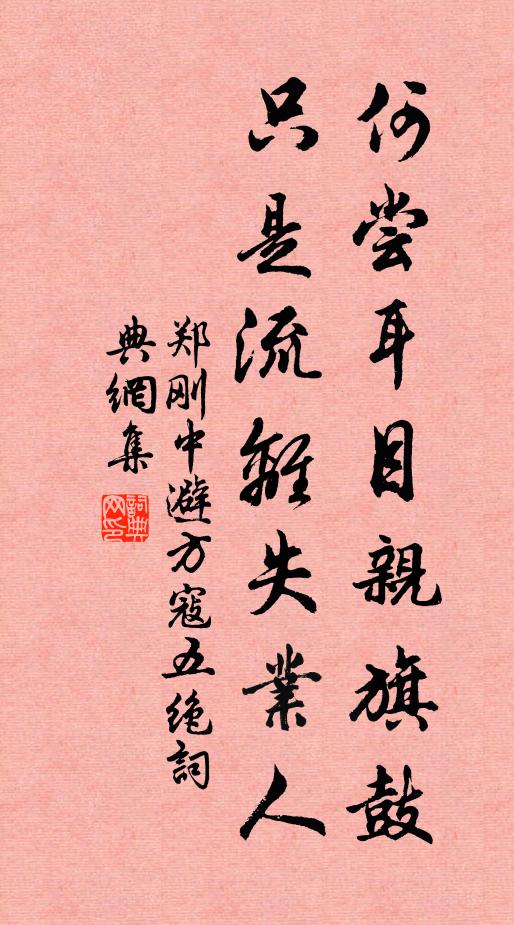 何尝耳目親旗鼓
只是流離失業人
郑刚中避方寇五绝詞
典網集
詞典网印